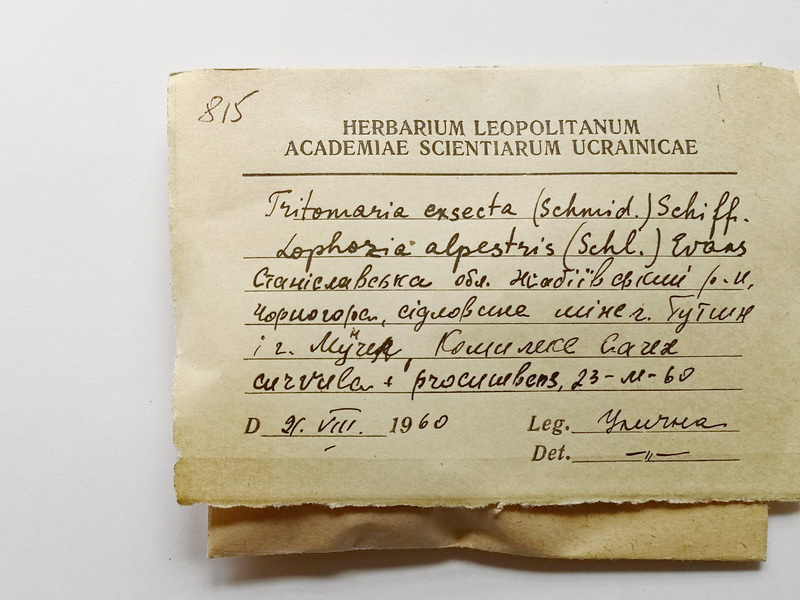 815
HERBARIUM LEOPOLITANUM
ACADEMIAE SCIENTIARUM UCRAINICAE
Tritomaria exsecta (Schmid.) Schiff.
Lophozia alpestris (Schl.) Evans
Станіславська обл. Жабіївський р-н,
Чорногора, сідловина між г. Гутин
і г. Комплекс Carex
curvula + procumbens, 23-М-60
D VIII. 1960 Leg. Улична
Det. —"—